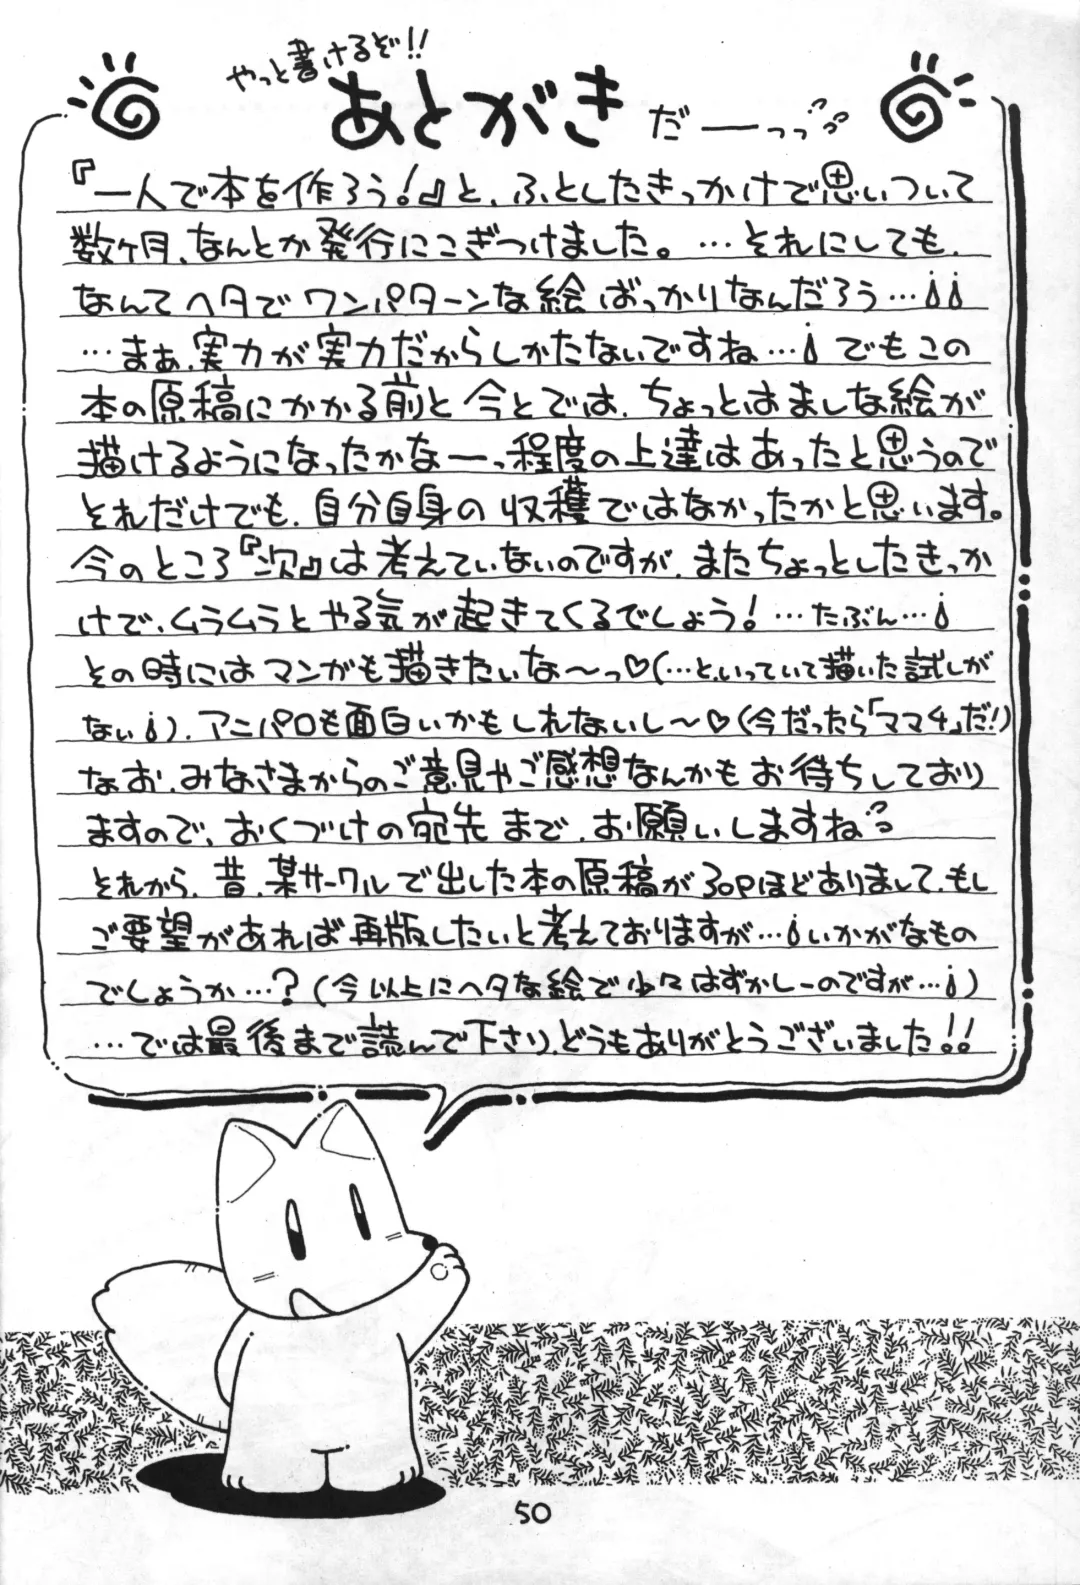 やっと書けるぞ!!
あとがきだーっっ
『一人で本を作ろう!』と、ふとしたきっかけで思いついて
数ヶ月、なんとか発行にこぎつけました。…それにしても、
なんてヘタでワンパターンな絵ばっかりなんだろう…
…まぁ、実力が実力だからしかたないですね…でもこの
本の原稿にかかる前と今とでは、ちょっとはましな絵が
描けるようになったかなーっ程度の上達はあったと思うので
それだけでも、自分自身の収穫ではなかったかと思います。
今のところ『次』は考えていないのですが、またちょっとしたきっか
けで、ムラムラとやる気が起きてくるでしょう!…たぶん…
その時にはマンガも描きたいな〜っ♡(…と、いっていて描いた試しが
ない)、アニパロも面白いかもしれないし〜♡(今だったら「ママ4」だ!)
なお、みなさまからのご意見やご感想なんかもお待ちしており
ますので、おくづけの宛先まで、お願いしますね
それから、昔、某サークルで出した本の原稿が30pほどありまして、もし
ご要望があれば再版したいと考えておりますが…いかがなもの
でしょうか…?(今以上にヘタな絵で少々はずかしーのですが…)
…では最後まで読んで下さり、どうもありがとうございました!!
50